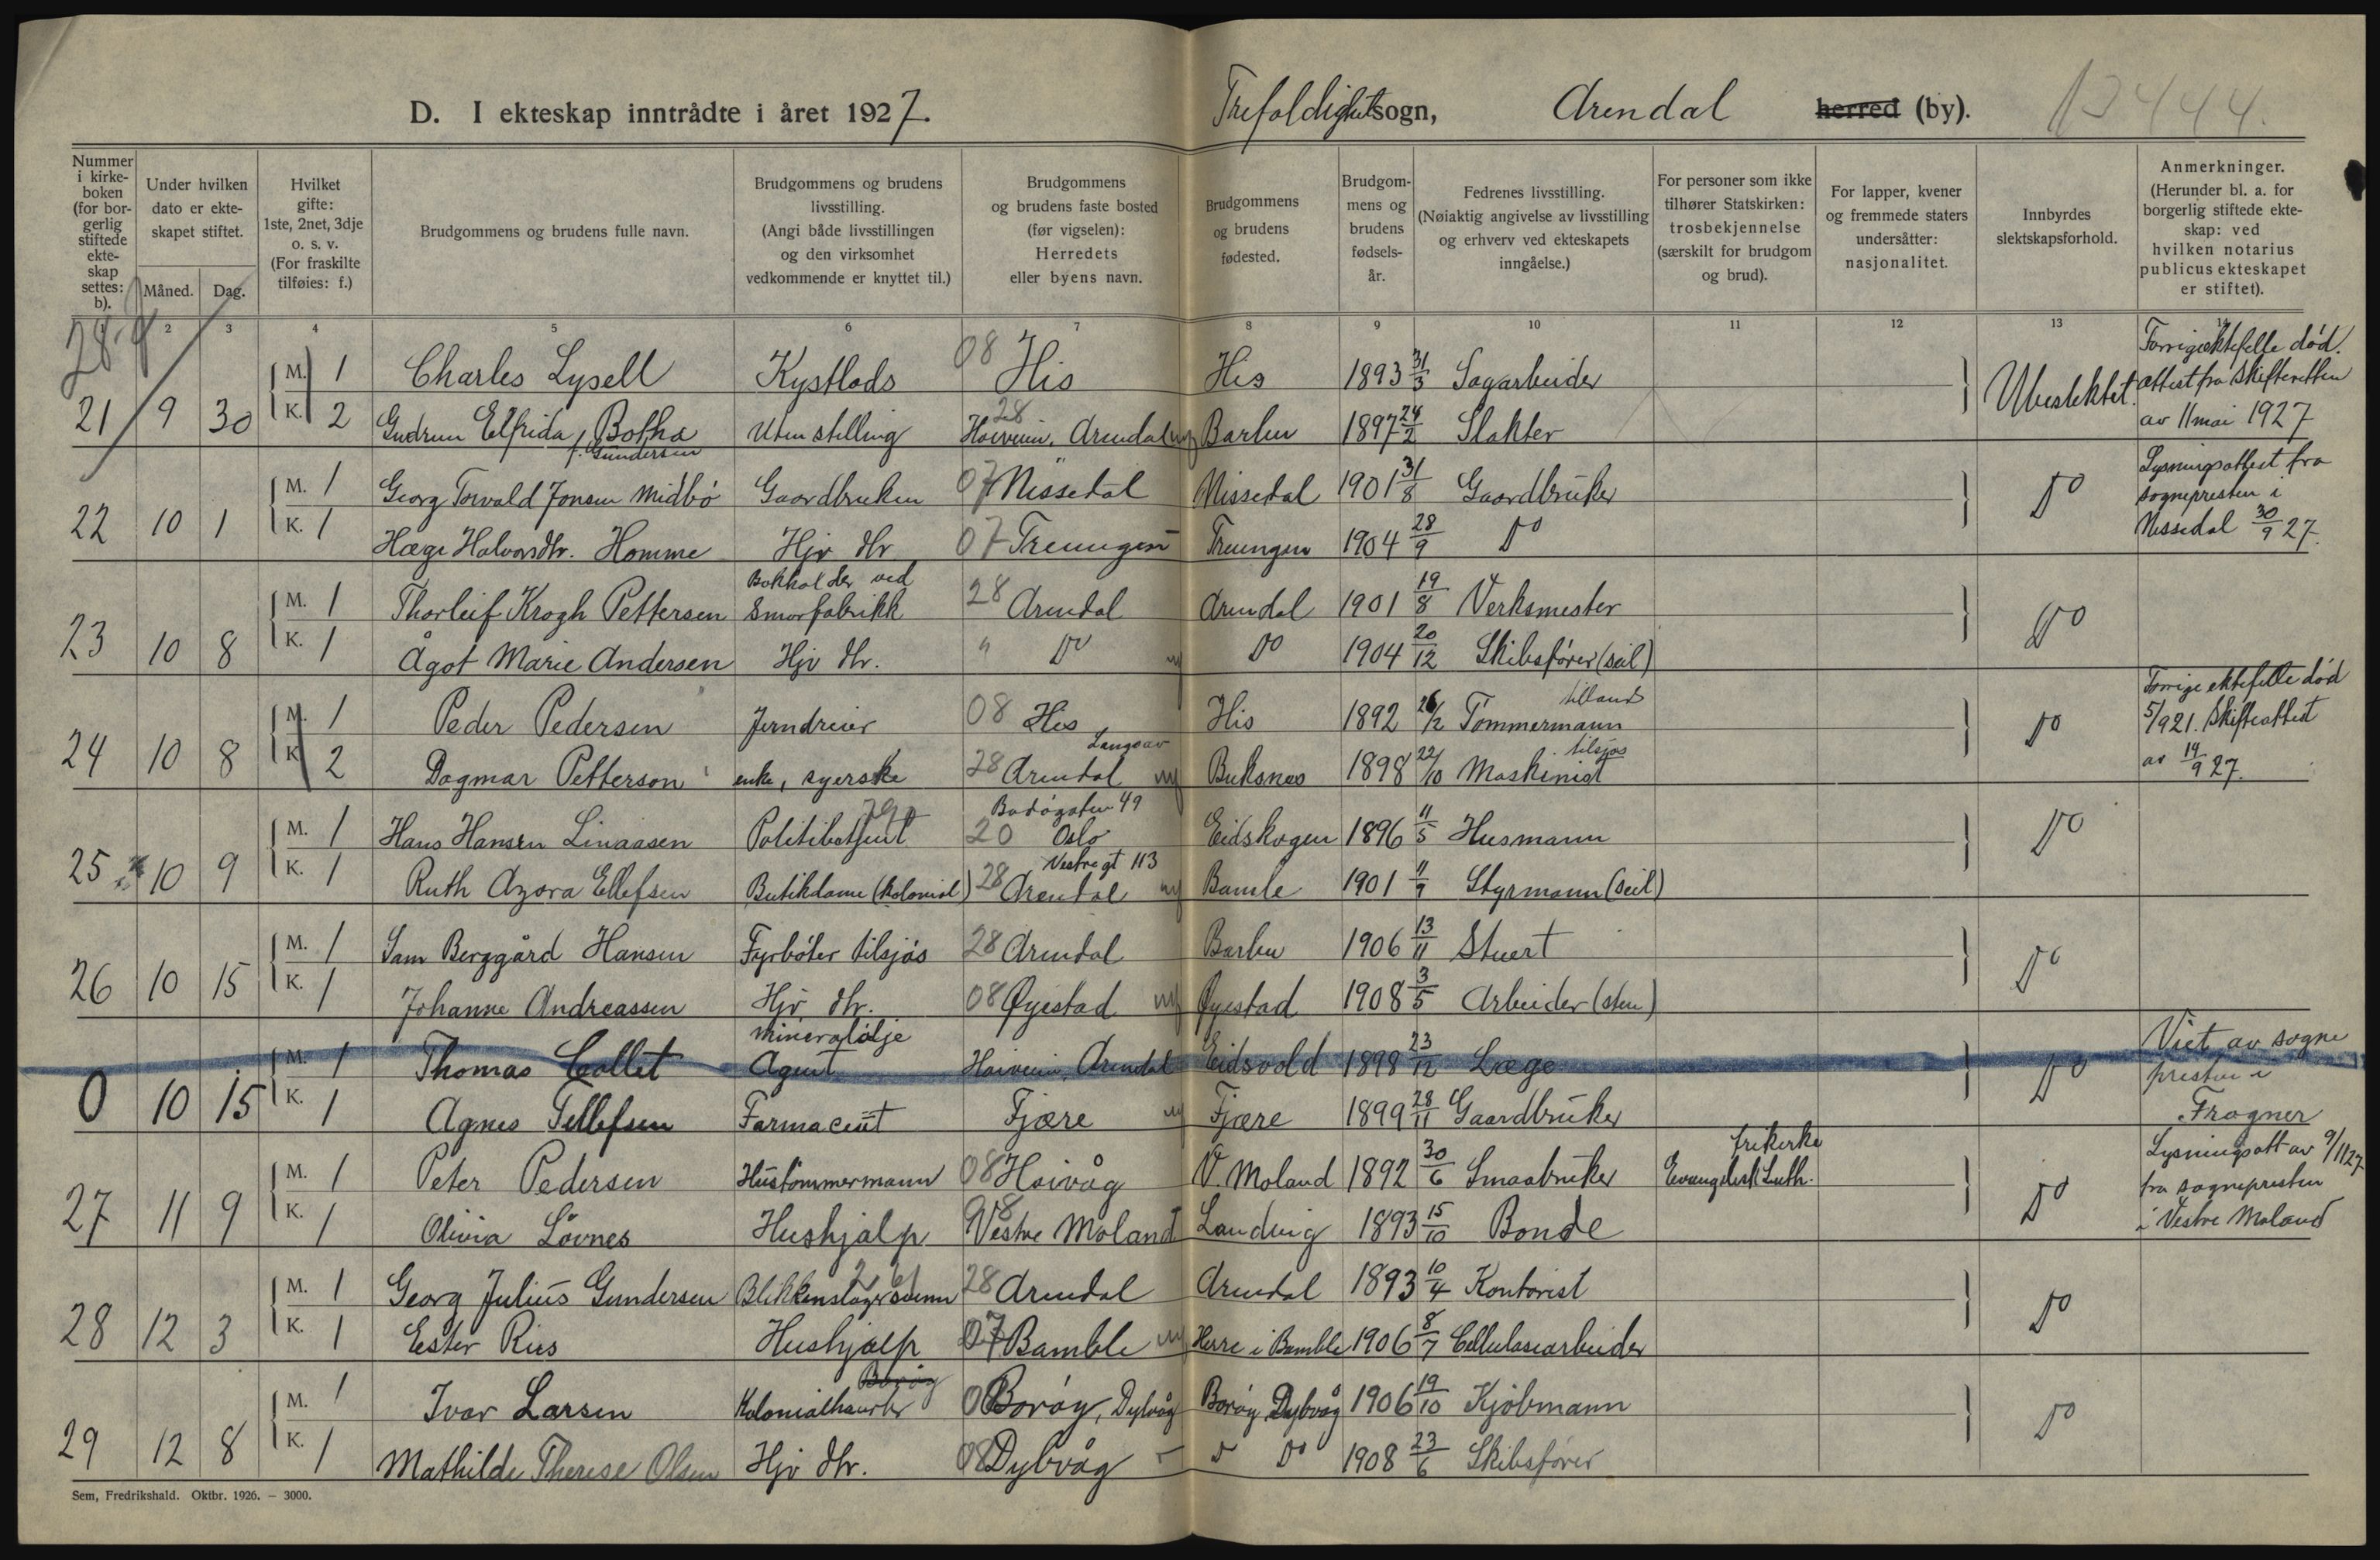 D. I ekteskap inntrådte i året 1927. Trefoldighetsogn, Arendal herred (by). 13444.
Nummer i kirkeboken (for borgerlig stiftede ekteskap settes: b).
Under hvilken dato er ekteskapet stiftet.
Måned. Dag.
Hvilket gifte: 1ste, 2net, 3dje o. s. v. (For fraskilte tilføies: f.)
Brudgommens og brudens fulle navn.
Brudgommens og brudens livsstilling. (Angi både livsstillingen og den virksomhet vedkommende er knyttet til.)
Brudgommens og brudens faste bosted (før vigselen): Herredets eller byens navn.
Brudgommens og brudens fødested.
Brudgommens og brudens fødselsår.
Fedrenes livsstilling. (Nøiaktig angivelse av livsstilling og erhverv ved ekteskapets inngåelse.)
For personer som ikke tilhører Statskirken: trosbekjennelse (særskilt for brudgom og brud).
For lapper, kvener og fremmede staters undersåtter: nasjonalitet.
Innbyrdes slektskapsforhold.
Anmerkninger. (Herunder bl. a. for borgerlig stiftede ekteskap: ved hvilken notarius publicus ekteskapet er stiftet).
1 2 3 4 5 6 7 8 9 10 11 12 13 14
21 9 30 M. 1 Charles Lysell Kystlods 08 His His 1893 31/3 Sagarbeider Ubeslektet. Forrige ektefelle død. attest fra Skifteretten av 11 mai 1927
K. 2 Gudrun Elfrida Botha f. Gundersen Uten stilling 28 Arendal Barbu 1897 24/2 Slakter
22 10 1 M. 1 Georg Torvald Jonsen Midbö Gaardbruker 07 Nissedal Nissedal 1901 31/8 Gaardbruker Do Lysningsattest fra sognepresten i Nissedal 30/9 27.
K. 1 Hæge Halvorsdtr. Homme Hjv dtr 07 Treungen Treungen 1904 28/9 Do
23 10 8 M. 1 Thorleif Krogh Pettersen Bokholder ved Smørfabrikk 28 Arendal Arendal 1901 19/8 Verksmester Do
K. 1 Ågot Marie Andersen Hjv dtr. " Do Do 1904 20/12 Skibsfører (seil)
24 10 8 M. 1 Peder Pedersen Jerndreier 08 His His 1892 26/2 Tømmermann tillands Do Forrige ektefelle død 5/921. Skifteattest av 14/9 27.
K. 2 Dagmar Petterson enke, syerske 28 Arendal Buksnes 1898 22/10 Maskinist tilsjøs
25 10 9 M. 1 Hans Hansen Linaasen Politibetjent 20 Bodøgaten 49 Oslo Eidskogen 1896 11/5 Husmann Do
K. 1 Ruth Azora Ellefsen Butikdame (kolonial) 28 Vestregt 113 Arendal Bamle 1901 11/9 Styrmann (seil)
26 10 15 M. 1 Sam Berggård Hansen Fyrbøter tilsjøs 28 Arendal Barbu 1906 13/11 Stuert Do
K. 1 Johanne Andreassen Hjv. dtr. 08 Øyestad Øyestad 1908 3/5 Arbeider (sten)
0 10 15 M. 1 Thomas Collet mineralolje Agent Arendal Eidsvold 1898 23/12 Læge Do Viet av sognepresten i Frogner
K. 1 Agnes Tellefsen Farmaceut Fjære Fjære 1899 28/11 Gaardbruker
27 11 9 M. 1 Peter Pedersen Hustømmermann 08 Høivåg V. Moland 1892 30/6 Smaabruker Evangelisk Luth. frikirke Do Lysningsatt av 9/1127 fra sognepresten i Vestre Moland
K. 1 Olivia Løvnes Hushjælp Vestre Moland Landvig 1893 15/10 Bonde
28 12 3 M. 1 Georg Julius Gundersen Blikkenslagersvenn 28 Arendal Arendal 1893 10/4 Kontorist Do
K. 1 Ester Riis Hushjælp 07 Bamble Herre i Bamble 1906 8/7 Cellulosearbeider
29 12 8 M. 1 Ivar Larsen Kolonialhandler 08 Borøy, Dybvåg Borøy, Dybvåg 1906 19/10 Kjøbmann Do
K. 1 Mathilde Therese Olsen Hjv dtr. 08 Dybvåg Do 1908 23/6 Skibsfører
Sem, Fredrikshald. Oktbr. 1926. — 3000.